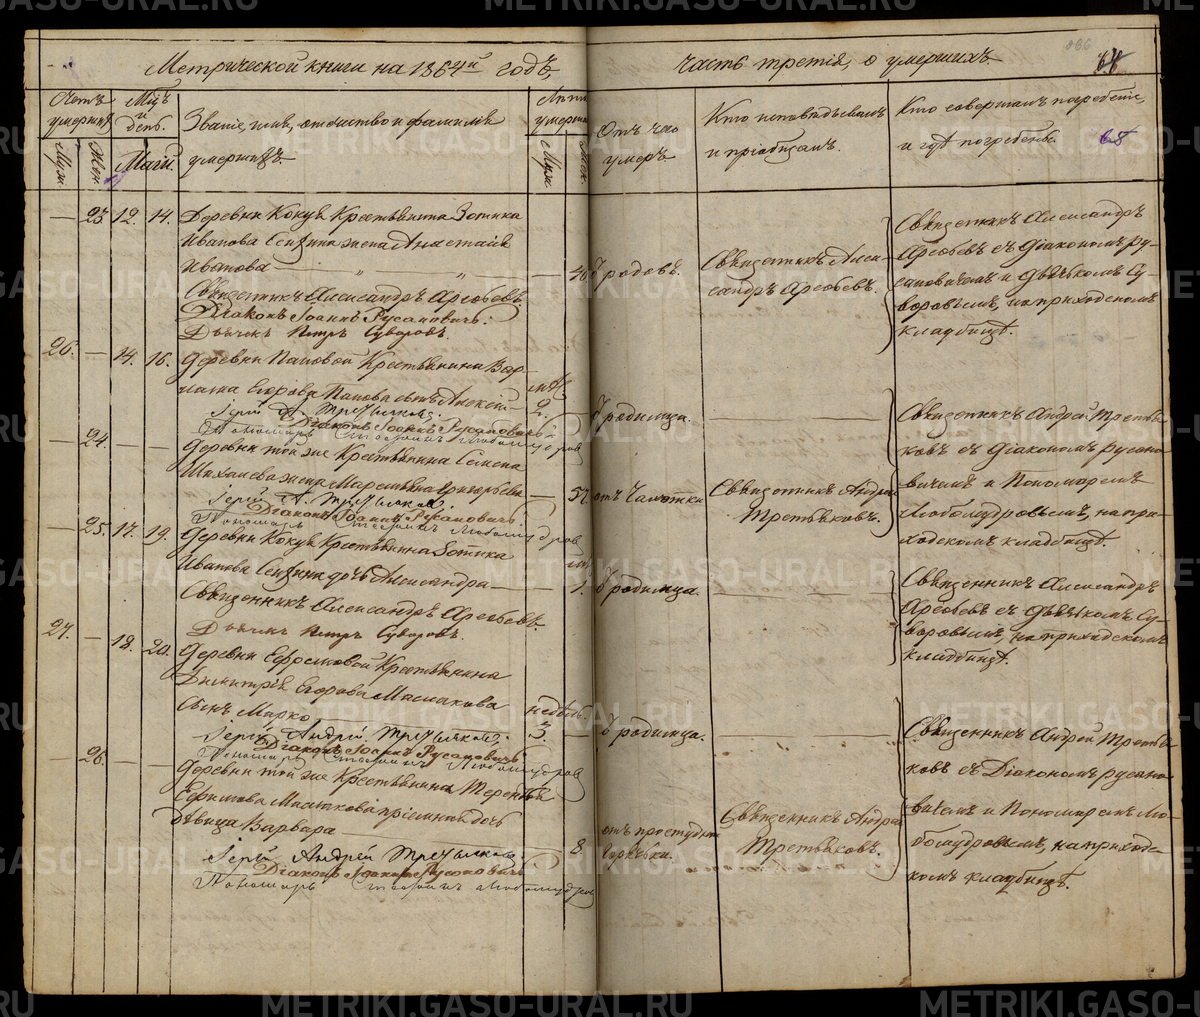 Метрической книги на 1864й годъ,
часть третія, о умершихъ
68
Счетъ умершихъ
Муж.
Жен.
Мѣс. и день.
Маій.
Званіе, имя, отчество и фамилія
умершихъ
Лѣта умершаго
Муж.
Жен.
Отъ чего
умеръ
Кто исповѣдывалъ
и пріобщалъ.
Кто совершалъ погребеніе,
и гдѣ погребенъ.
— 23 12. 14. Деревни Кокуя Крестьянина Зотика
Иванова жена Анастасія
Иванова — 40
родовъ.
Священникъ Алек-
сандръ Арефьевъ.
Священникъ Александръ
Арефьевъ съ Діакономъ Ру-
сановичемъ и Дьячкомъ Су-
воровымъ, на приходскомъ
кладбищѣ.
Священникъ Александръ Арефьевъ.
Діаконъ Іоаннъ Русановичъ.
Дьячекъ Петръ Суворовъ.
26. — 14. 16. Деревни Пановой Крестьянина Вар-
лама Егорова Панова сынъ Алексій
2.
родимца.
Іерей А. Третьяковъ.
Діаконъ Іоаннъ Русановичъ.
Пономарь Любомудровъ
Священникъ Андрей Третья-
ковъ съ Діакономъ Русано-
вичемъ и Пономаремъ
Любомудровымъ, на при-
ходскомъ кладбищѣ.
— 24 — Деревни той же Крестьянина Семена
Михалева жена Маремьяна Григорьева — 57.
отъ Чахотки
Священникъ Андрей
Третьяковъ.
Іерей А. Третьяковъ.
Діаконъ Іоаннъ Русановичъ.
Пономарь Любомудровъ
— 25. 17. 19. Деревни Кокуя Крестьянина Зотика
Иванова дочь Александра — 1.
родимца.
Священникъ Александръ Арефьевъ.
Дьячекъ Петръ Суворовъ.
Священникъ Александръ
Арефьевъ съ Дьячкомъ Су-
воровымъ, на приходскомъ
кладбищѣ.
27. — 18. 20. Деревни Ефремовой Крестьянина
Димитрія Егорова Маслакова
сынъ Марко
недѣль.
3.
родимца.
Іерей Андрей Третьяковъ.
Діаконъ Іоаннъ Русановичъ
Пономарь Любомудровъ
Священникъ Андрей Третья-
ковъ съ Діакономъ Русано-
вичемъ и Пономаремъ Лю-
бомудровымъ, на приход-
скомъ кладбищѣ.
— 26. — Деревни той же Крестьянина Терентія
Ефимова пріемная дочь
дѣвица Варвара — 8
отъ простудной
горячки.
Священникъ Андрей
Третьяковъ.
Іерей Андрей Третьяковъ
Діаконъ Іоаннъ Русановичъ
Пономарь Любомудровъ
METRIKI.GASO-URAL.RU